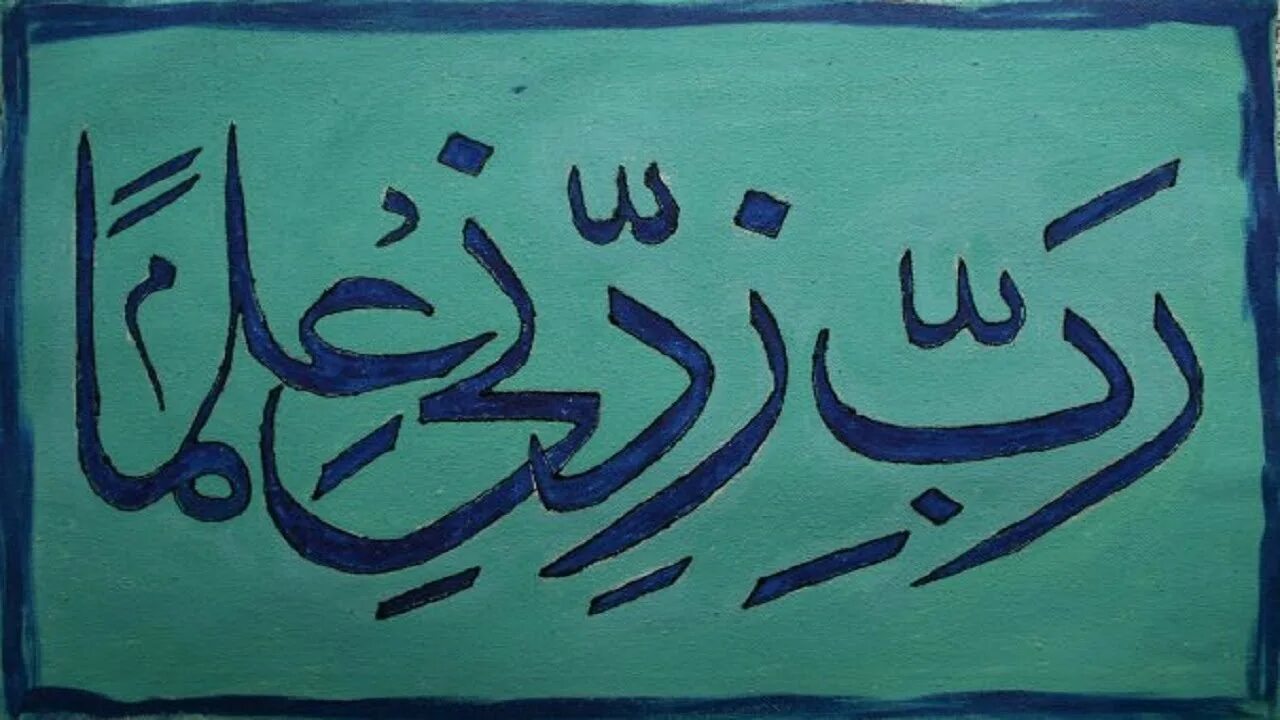 رَبِّ زِدّنِي عِلْمًا